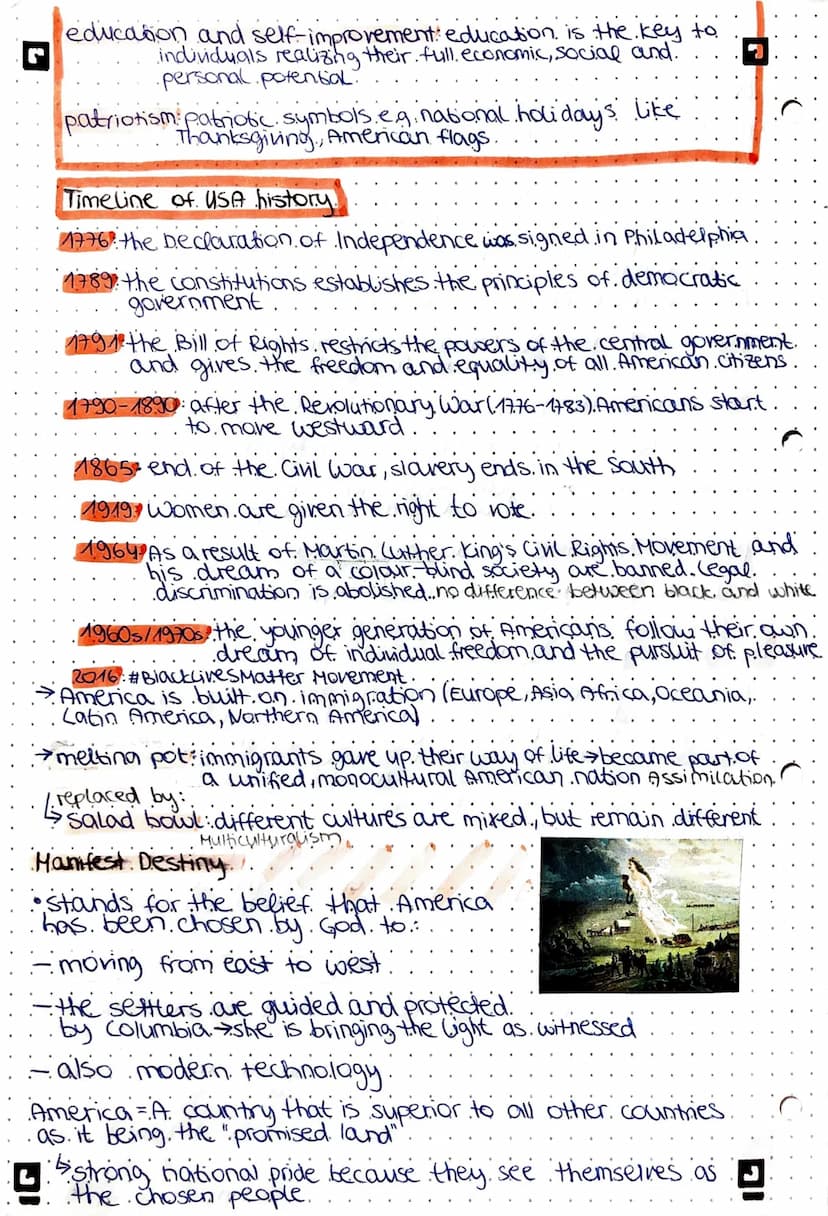 education and self-improvement: education is the key to
individuals realizing their full economic, social and
personal potential.
patriotism: patriotic symbols e.g. national holidays like
Thanksgiving, American flags
Timeline of USA history
1776: the Declaration of Independence was signed in Philadelphia
1789: the constitutions establishes the principles of democratic
government
1791: the Bill of Rights restricts the powers of the central government
and gives the freedom and equality of all American citizens
1790-1890: after the Revolutionary War (1776-1783) Americans start
to move westward
1865: end of the Civil War, slavery ends in the South
1919: Women are given the right to vote
1964: As a result of Martin Luther King's Civil Rights Movement and
his dream of a colour-blind society are banned. Legal
discrimination is abolished. no difference between black and white
1960s/1970s: the younger generation of Americans follow their own
dream of individual freedom and the pursuit of pleasure
2016: #BlackLivesMatter Movement
→ America is built on immigration (Europe, Asia, Africa, Oceania,
Latin America, Northern America)
→ melting pot: immigrants gave up their way of life → became part of
a unified, monocultural American nation Assimilation
replaced by:
↳ salad bowl: different cultures are mixed, but remain different
Multiculturalism
Manifest Destiny
• stands for the belief that America
has been chosen by God to:
- moving from east to west
- the settlers are guided and protected
by Columbia → she is bringing the light as witnessed
- also modern technology
America = A country that is superior to all other countries
as it being the "promised land"
↳ strong national pride because they see themselves as
the chosen people